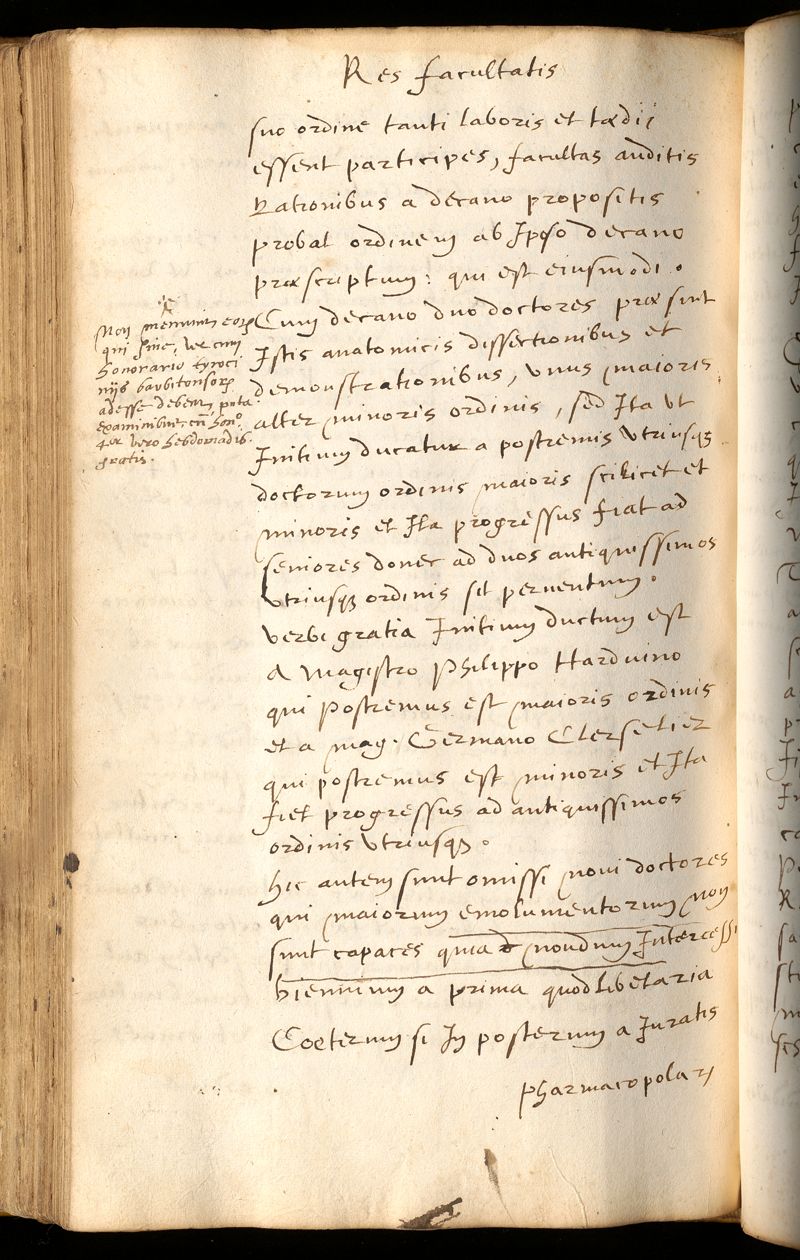 Res facultatis
suo ordine tanti laboris et tædij
essent participes, facultas auditis
rationibus a decano propositis
probat ordinem ab Ipso decano
præscriptum: qui est eiusmodi.
Cum decano duo doctores præsint
Istis anatomicis dissectionibus et
demonstrationibus, vnus maioris
alter minoris ordinis, sed Ita vt
Initium ducatur a postremis vtriusqȝ
doctorum ordinis maioris scilicet et
minoris et Ita progressus fiat ad
seniores donec ad duos antiquissimos
vtriusqȝ ordinis sit peruentum.
verbi gratia Initium ductum est
a Magistro Philippo Harduino
qui postremus est maioris ordinis
et a mag. Germano Clerselier
qui postremus est minoris et Ita
fiet progressus ad antiquissimos
ordinis vtriusqȝ.
hic autem sunt omissi noui doctores
qui maiorum emolumentorum non
sunt capaces quia nondum Intercessit
biennium a prima quodlibetaria
Coeterum si In posterum a Juratis
pharmacopolar
Non
qui sine, vel cum
honorario tyroci
nijs barbitonsor
adesse debent, puta
examinibus cum hono
4or vero hebdomadis
gratis.